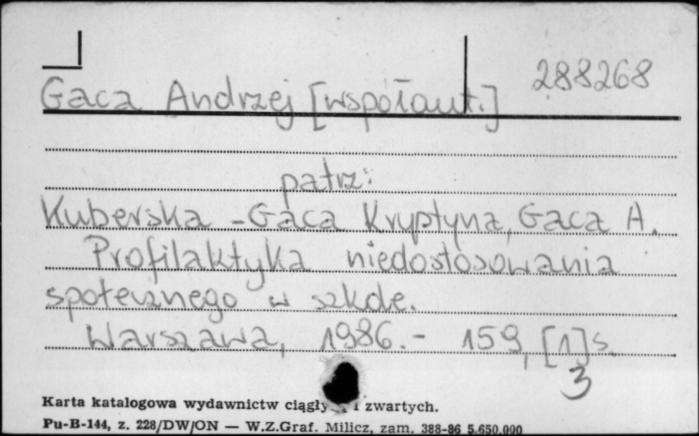 288268
Gaca Andrzej [współaut.]
patrz:
Kuberska-Gaca Krystyna, Gaca A.
Profilaktyka niedostosowania
społecznego w szkole.
Warszawa, 1986.- 159, [1] s.
3
Karta katalogowa wydawnictw ciągły i zwartych.
Pu-B-144, z. 228/DW/ON — W.Z.Graf. Milicz, zam. 388-86 5.650.000